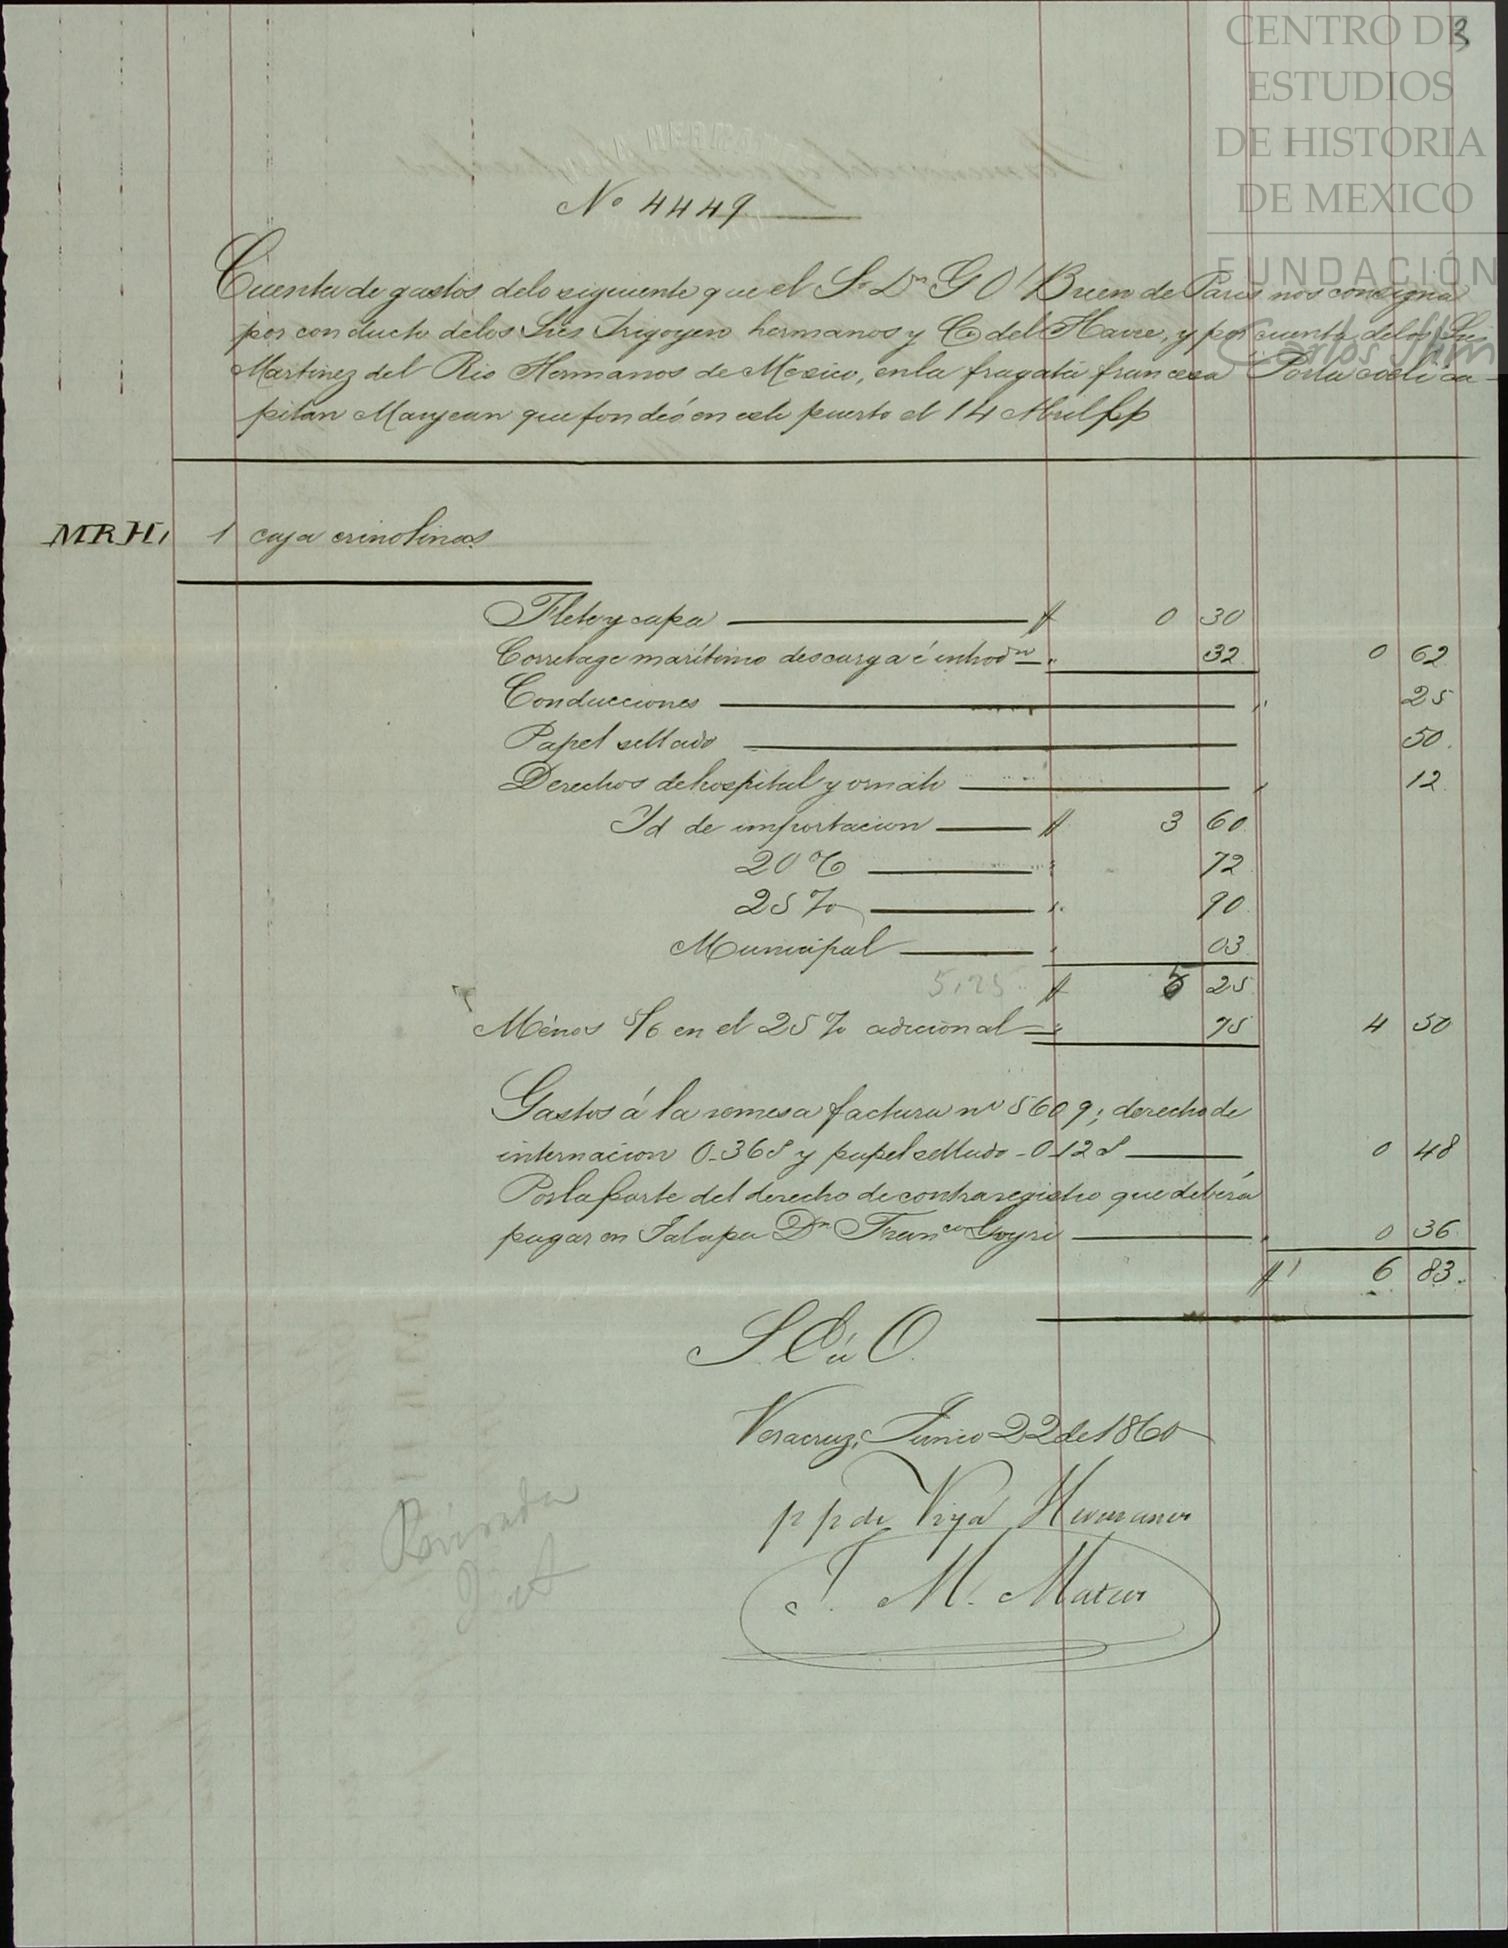 3
CENTRO DE
ESTUDIOS
DE HISTORIA
DE MEXICO
FUNDACIÓN
Carlos Slim
No 4449
Cuenta de gastos de lo siguiente que el Sr Dn G O'Brien de Paris nos consigna
por conducto de los Sres Irigoyen hermanos y Ca del Havre, y por cuenta de los Sres
Martinez del Rio Hermanos de Mexico, en la fragata francesa Porta coeli ca-
pitan Maryean que fondeó en este puerto el 14 Abril pp
MRH, 1 caja crinolinas
Flete y capa $ 0 30
Corretage marítimo descarga é introdon " 32 0 62
Conducciones " 25
Papel sellado 50
Derechos de hospital y ornato " 12
Id de importacion $ 3 60
20 % " 72
25 % " 90
Municipal " 03
5,25 $ 5 25
Ménos 5/6 en el 25 % adicional " 75 4 50
Gastos á la remesa factura no 5609; derecho de
internacion 0.36s y papel sellado - 0.12s 0 48
Por la parte del derecho de contraregistro que deberá
pagar en Jalapa Dn Franco Goyri " 0 36
$ 6 83.
S. E. ú O.
Veracruz, Junio 22 de 1860
p p de Viya Hermanos
J. M. Mateos
Revisada